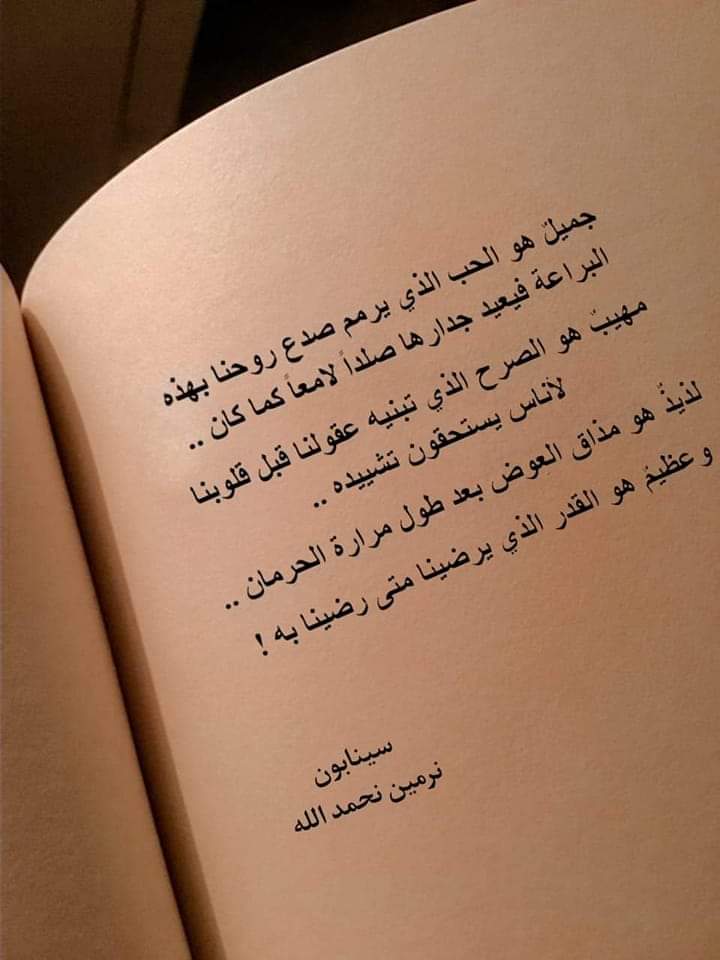 جميلٌ هو الحب الذي يرمم صدع روحنا بهذه
البراعة فيعيد جدارها صلداً لامعاً كما كان ..
مهيبٌ هو الصرح الذي تبنيه عقولنا قبل قلوبنا
لأناس يستحقون تشييده ..
لذيذٌ هو مذاق العِوض بعد طول مرارة الحرمان ..
وعظيمٌ هو القدر الذي يرضينا متى رضينا به !
سينابون
نرمين نحمد الله